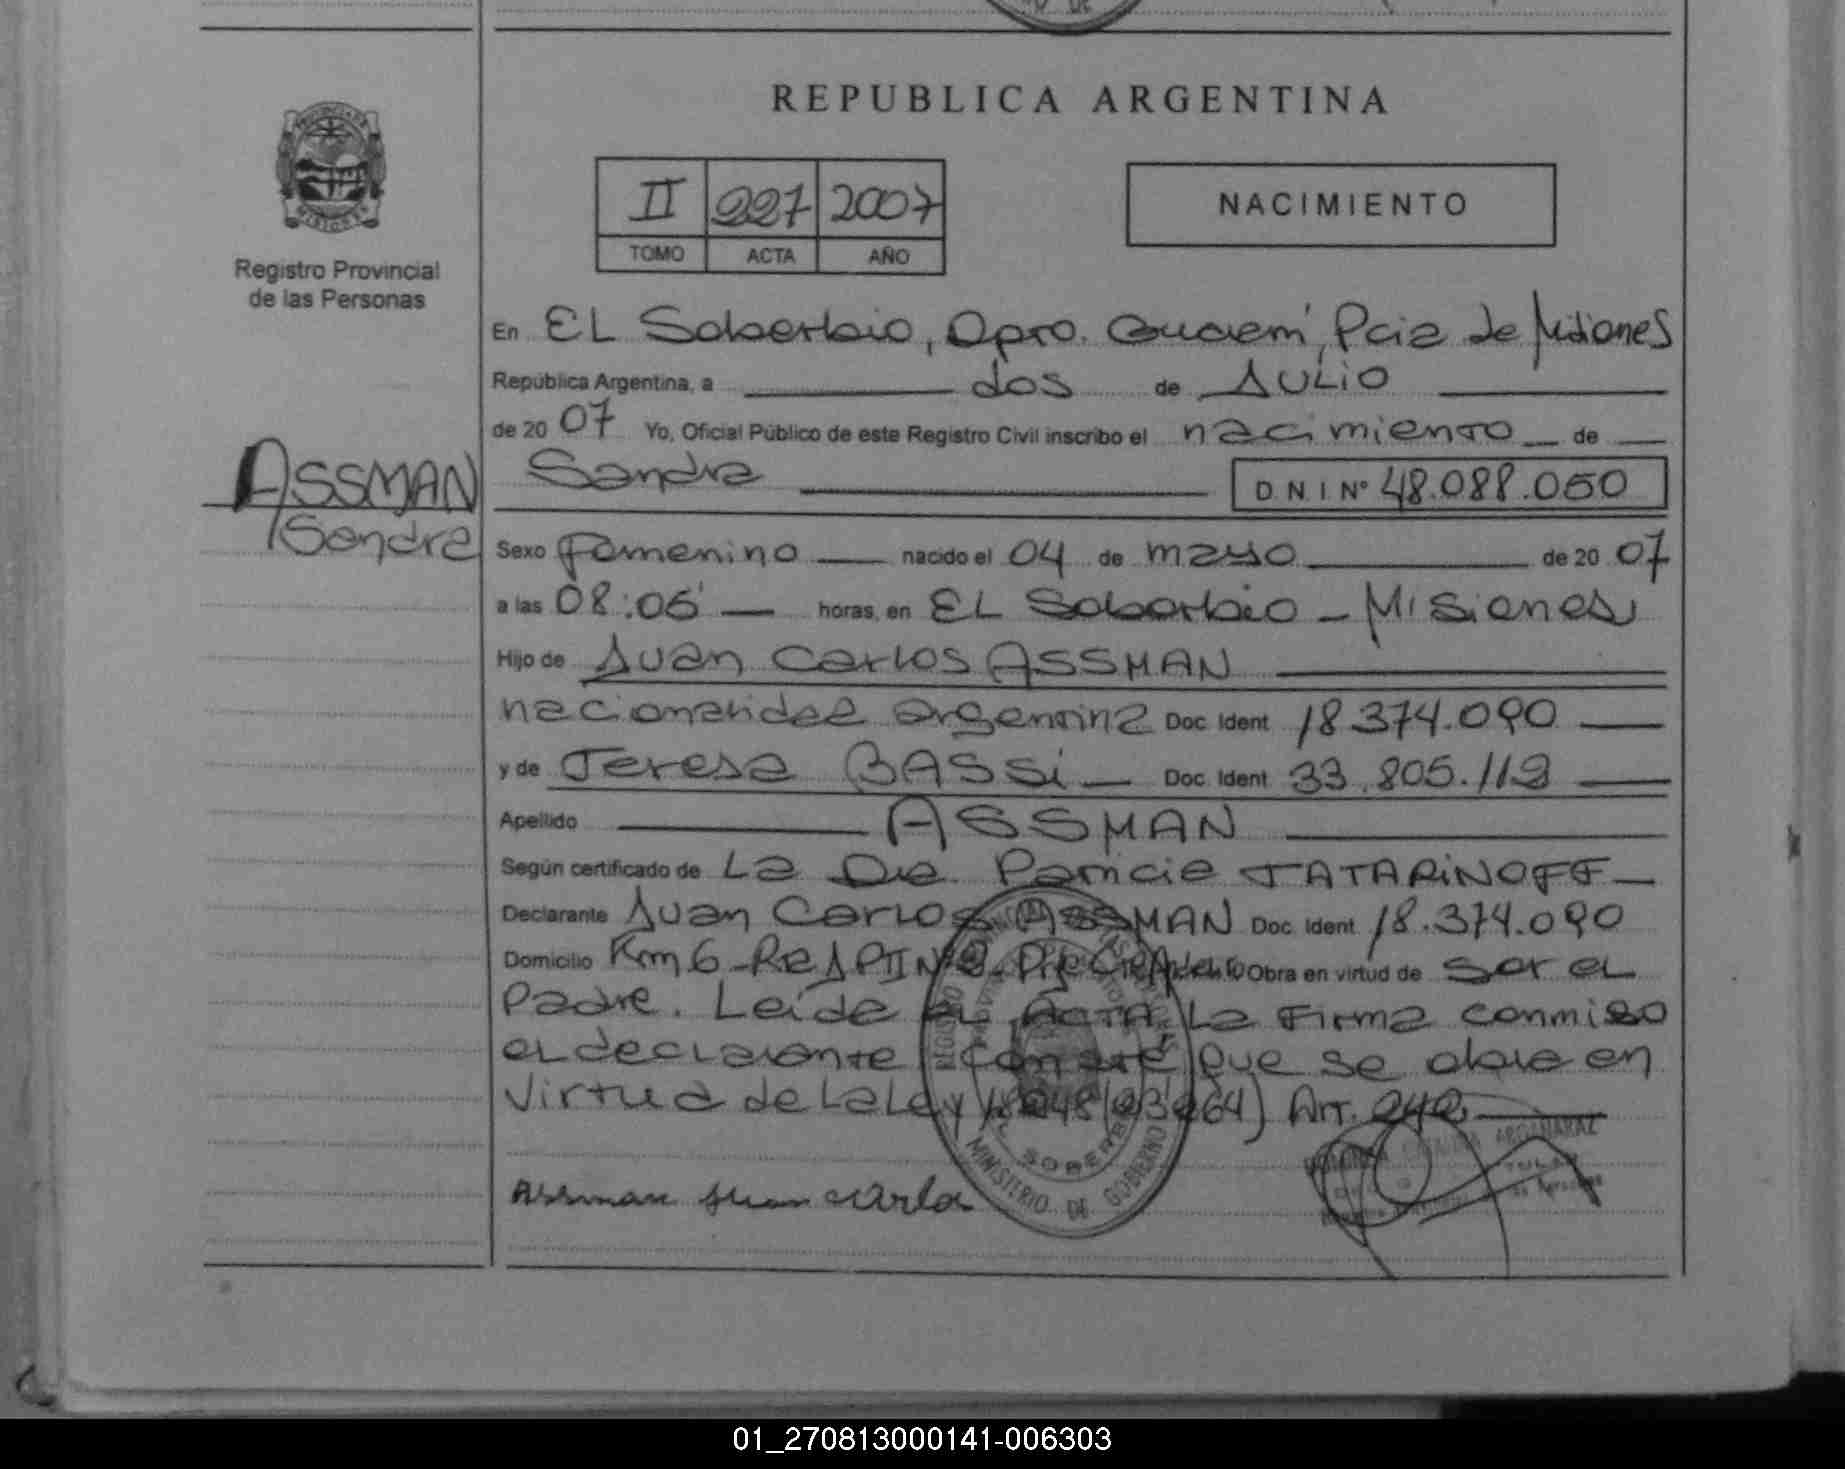 REPUBLICA ARGENTINA
II 227 2007
TOMO ACTA AÑO
NACIMIENTO
Registro Provincial
de las Personas
En EL Soberbio, Dpto. Guaraní, Pcia de Misiones
República Argentina, a dos de JULIO
de 20 07 Yo, Oficial Público de este Registro Civil inscribo el nacimiento de
Sandra D.N.I. Nº 48.088.050
ASSMAN
Sandra
Sexo Femenino nacido el 04 de mayo de 20 07
a las 08:05 horas, en EL Soberbio - Misiones
Hijo de Juan Carlos ASSMAN
nacionalidad argentina Doc. Ident. 18.374.090
y de Teresa BASSi Doc. Ident. 33.805.112
Apellido ASSMAN
Según certificado de La Dra. Patricia TATARiNOFF
Declarante Juan Carlos ASSMAN Doc. Ident. 18.374.090
Domicilio Km 6 - Obra en virtud de ser el
Padre. Leída el ACTA La Firma conmigo
el declarante que se obra en
Virtud de La Ley Art.
REGISTRO PROVINCIAL
MINISTERIO DE GOBIERNO
Assman Juan Carlos
01_270813000141-006303